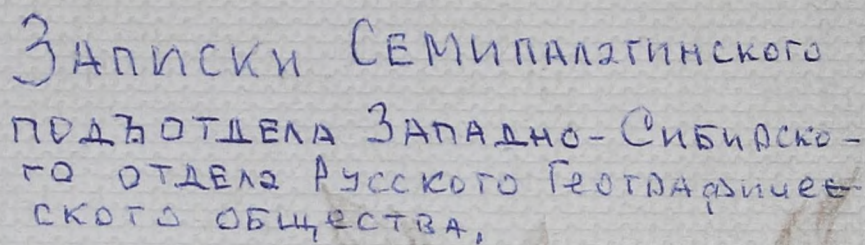 Записки Семипалатинского
подъотдела Западно-Сибирско-
го отдела Русского Географичес
ского общества,